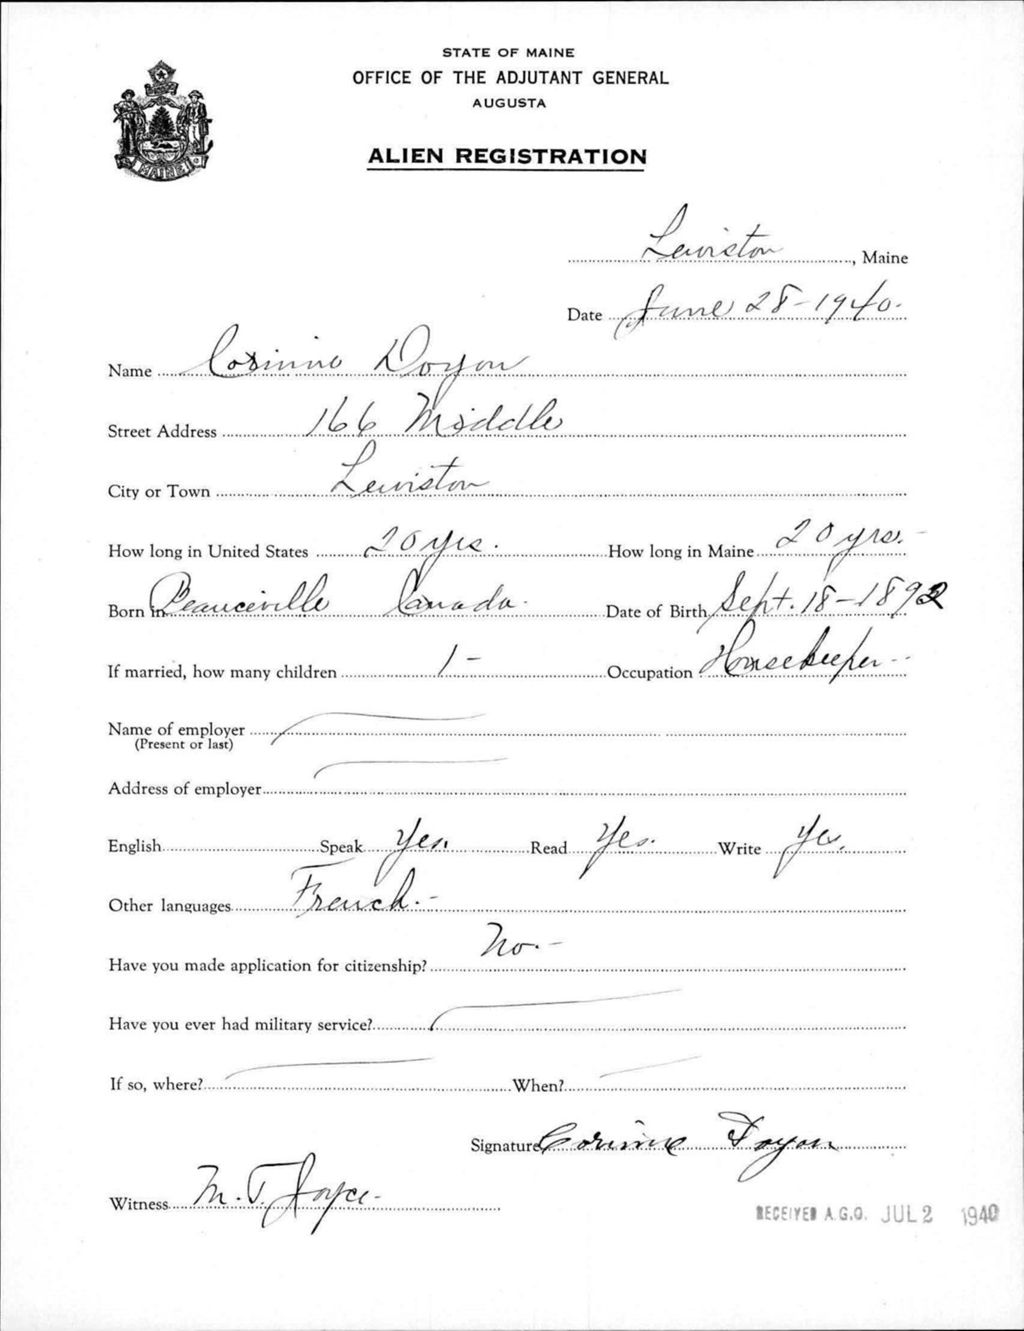 STATE OF MAINE
OFFICE OF THE ADJUTANT GENERAL
AUGUSTA
ALIEN REGISTRATION
MAINE
Lewiston, Maine
Date June 28-1940-
Name Corinne Doyon
Street Address 166 Middle
City or Town Lewiston
How long in United States 20 yrs. How long in Maine 20 yrs.-
Born in Beauceville Canada. Date of Birth Sept. 18-1892
If married, how many children 1- Occupation Housekeeper--
Name of employer
(Present or last)
Address of employer
English Speak Yes. Read Yes. Write Yes.
Other languages French.-
Have you made application for citizenship? No.-
Have you ever had military service?
If so, where? When?
Signature Corinne Doyon
Witness M. T. Joyce-
RECEIVED A.G.O. JUL 2 1940